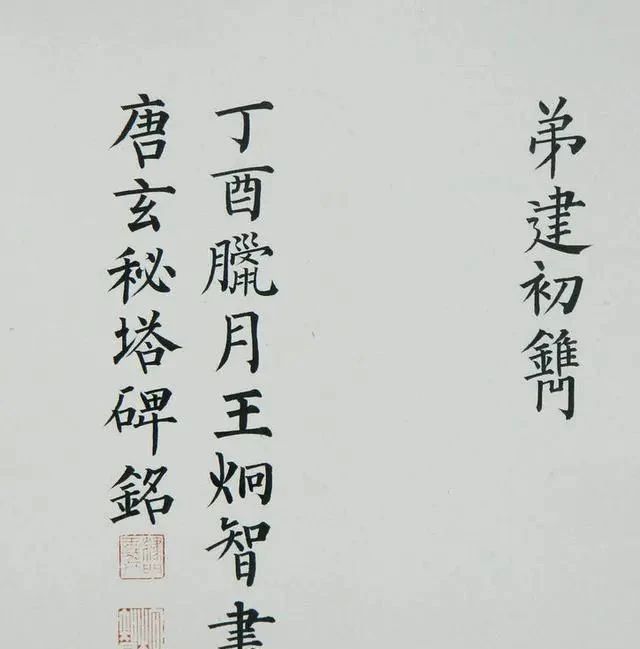 弟建初鐫
丁酉臘月王炯智書
唐玄秘塔碑銘